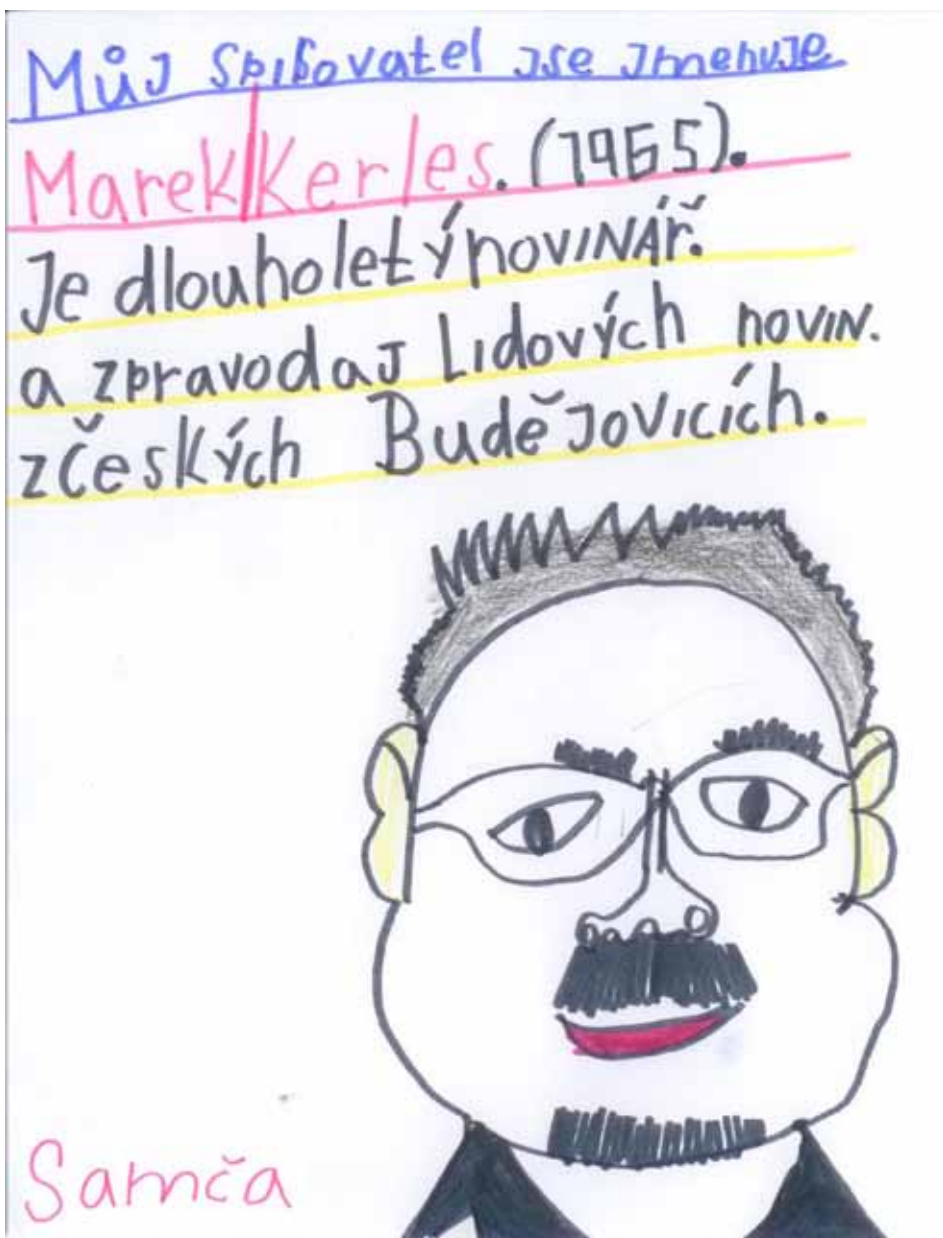 Můj spisovatel jse jmenuje
Marek Kerles. (1965).
Je dlouholetý novinář.
a zpravodaj Lidových novin.
z Českých Budějovicích.
Samča